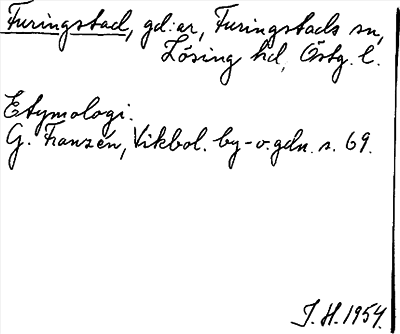 Furingstad, gd:ar, Furingstads sn,
Lösing hd, Östg. l.
Etymologi.
G. Franzén, Vikbol. by- o. gdn. s. 69.
J. H. 1954.